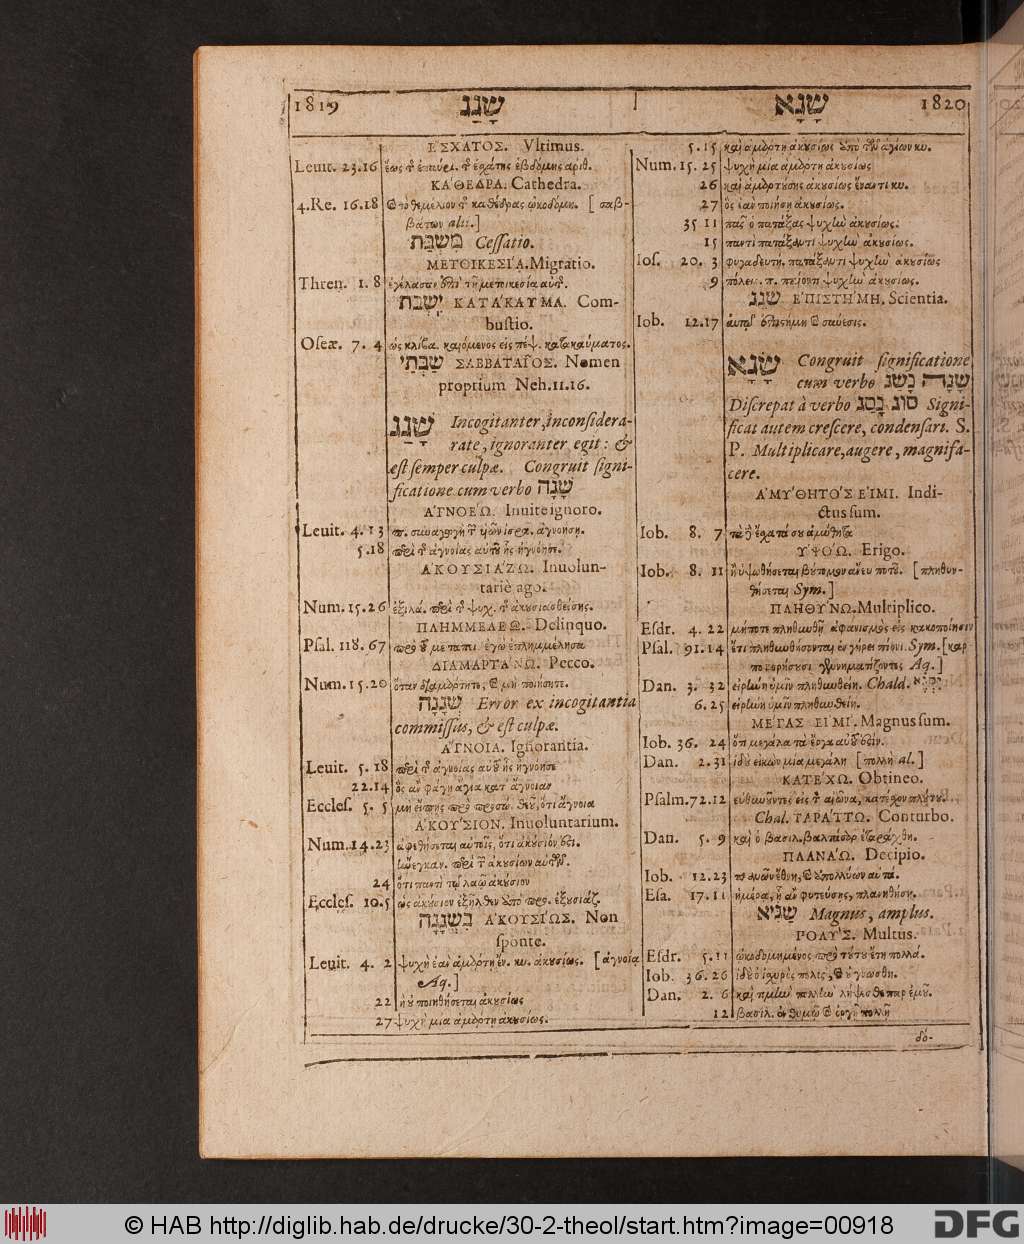 1819 שָׁגַג
שָׂגָא 1820
ΕΣΧΑΤΟΣ. Vltimus.
Leuit. 23.16 ἕως τ
ΚΑΘΕΔΡΑ. Cathedra.
4.Re. 16.18 θεμέλιον καθέδρας ᾠκοδόμη. [ σαβ-
βάτων alii.]
משבת Ceſſatio.
ΜΕΤΟΙΚΕΣΙΆ. Migratio.
Thren. 1. 8 ἐγέλασαν
ישבת ΚΑΤΆΚΑΥΜΑ. Com-
buſtio.
Oſeæ. 7. 4 ὡς κλίβα. καιόμενος εἰς πέψ. κατακαύματος.
שבתי ΣΑΒΒΑΤΑῖΟΣ. Nomen
proprium Neh. 11.16.
שָׁגַג Incogitanter, inconſidera-
rate, ignoranter egit: &
eſt ſemper culpæ. Congruit ſigni-
ficatione cum verbo שָׁגָה
ἈΓΝΟΕΏ. Inuite ignoro.
Leuit. 4. 13 π. συναγωγὴ ἀγνοήσῃ.
5.18 περὶ τ ἀγνοίας αὐτοῦ ἧς ἠγνόησε.
ἈΚΟΥΣΙΆΖΩ. Inuolun-
tariè ago.
Num. 15.26 ἐξιλά. περὶ τ ψυχ. τ ἀκουσιασθείσης.
ΠΛΗΜΜΕΛΕΏ. Delinquo.
Pſal. 118. 67 πρὸ
ΔΙΑΜΑΡΤΆΝΩ. Pecco.
Num. 15.20 ὅταν διαμάρτητε, ποιήσητε.
שגגה Error ex incogitantia
commiſſus, & eſt culpæ.
ἌΓΝΟΙΑ. Ignorantia.
Leuit. 5. 18 περὶ τ ἀγνοίας αὐτοῦ ἧς ἠγνόησε
22.14 ὃς ἂν φάγῃ ἅγια κατ' ἄγνοιαν
Eccleſ. 5. 5 μὴ εἴπῃς ὅτι ἄγνοια
ἈΚΟΎΣΙΟΝ. Inuoluntarium.
Num. 14.23 ἀφεθήσεται αὐτοῖς, ὅτι ἀκούσιόν ἐστι.
ἤνεγκαν. περὶ τ ἀκουσίων αὐτῶν.
24 ὅτι παντὶ τῷ λαῷ ἀκούσιον
Eccleſ. 10.5 ὡς ἀκούσιον ἐξῆλθεν ἀπὸ προ. ἐξουσιάζ.
בשגגה ἈΚΟΥΣΊΩΣ. Non
ſponte.
Leuit. 4. 2 ψυχὴ ἐὰν ἁμάρτῃ ἔν. κυ. ἀκουσίως. [ἀγνοία
Aq.]
22 ποιηθήσεται ἀκουσίως
27 ψυχὴ μία ἁμάρτῃ ἀκουσίως.
5.15 καὶ ἁμάρτῃ ἀκουσίως ἀπὸ τῶν ἁγίων κυ.
Num. 15. 25 ψυχὴ μία ἁμάρτῃ ἀκουσίως
26 ἀκουσίως ἔναντι κυ.
27 ὃς ἐὰν ποιήσῃ ἀκουσίως.
35 11 πᾶς ὁ πατάξας ψυχὴν ἀκουσίως.
15 παντὶ πατάξαντι ψυχὴν ἀκουσίως.
Ioſ. 20. 3 φυγαδευτη. πατάξαντι ψυχὴν ἀκουσίως
9 πόλεις ψυχὴν ἀκουσίως.
שגג ἘΠΙΣΤΉΜΗ, Scientia.
Iob. 12.17 αὐτῷ ἐπιστήμη σύνεσις.
שָׂגָא Congruit ſignificatione
cum verbo שָׂגָה נָשַׂג
Diſcrepat à verbo סוג נָסַג Signi-
ficat autem creſcere, condenſari. S.
P. Multiplicare, augere, magnifa-
cere.
ἈΜΎΘΗΤΌΣ ΕἸΜΙ. Indi-
ctus ſum.
Iob. 8. 7 τὰ ἔσχατά σου ἀμύθητα
ὙΨΌΩ. Erigo.
Iob. 8. 11 ἢ ὑψωθήσεται βούτομον ἄνευ ποτοῦ. [πληθυν-
θήσεται Sym.]
ΠΛΗΘΎΝΩ. Multiplico.
Eſdr. 4. 22 μήποτε πληθυνθῇ ἀφανισμὸς εἰς κακοποίησιν
Pſal. 91.14 ἔτι πληθυνθήσονται ἐν γήρει πίονι. Sym. [καρ
Aq.]
Dan. 3. 32 εἰρήνη ὑμῖν πληθυνθείη. Chald. ישגא
6.25 εἰρήνη ὑμῖν πληθυνθείη.
ΜΕΓΑΣ ΕΙΜΙ. Magnus ſum.
Iob. 36. 24 ὅτι μεγάλα τὰ ἔργα αὐτοῦ ἐστίν.
Dan. 2.31 ἰδοὺ εἰκὼν μία μεγάλη [πολλὴ al.]
ΚΑΤΈΧΩ. Obtineo.
Pſalm. 72.12 εὐθηνοῦντες εἰς τ αἰῶνα, κατέσχον πλούτου.
Chal. ΤΑΡΆΤΤΩ. Conturbo.
Dan. 5. 9 καὶ ὁ βασιλ. βαλτάσαρ ἐταράχθη.
ΠΛΑΝΆΩ. Decipio.
Iob. 12.23 πλανῶν ἔθνη, ἀπολλύων αὐτά.
Eſa. 17.11 ἡμέρα, ᾗ ἂν φυτεύσῃς, πλανηθήσῃ.
שגיא Magnus, amplus.
ΠΟΛΎΣ. Multus.
Eſdr. 5.11 ᾠκοδομημένος πρὸ τούτου ἔτη πολλά.
Iob. 36.26 ἰδοὺ ὁ ἰσχυρὸς πολὺς, γνωσθη.
Dan. 2. 6 καὶ τιμὴν πολλὴν λήψεσθε παρ' ἐμοῦ.
12 βασιλ. ἐν θυμῷ ὀργῇ πολλῇ
δό-
© HAB http://diglib.hab.de/drucke/30-2-theol/start.htm?image=00918
DFG